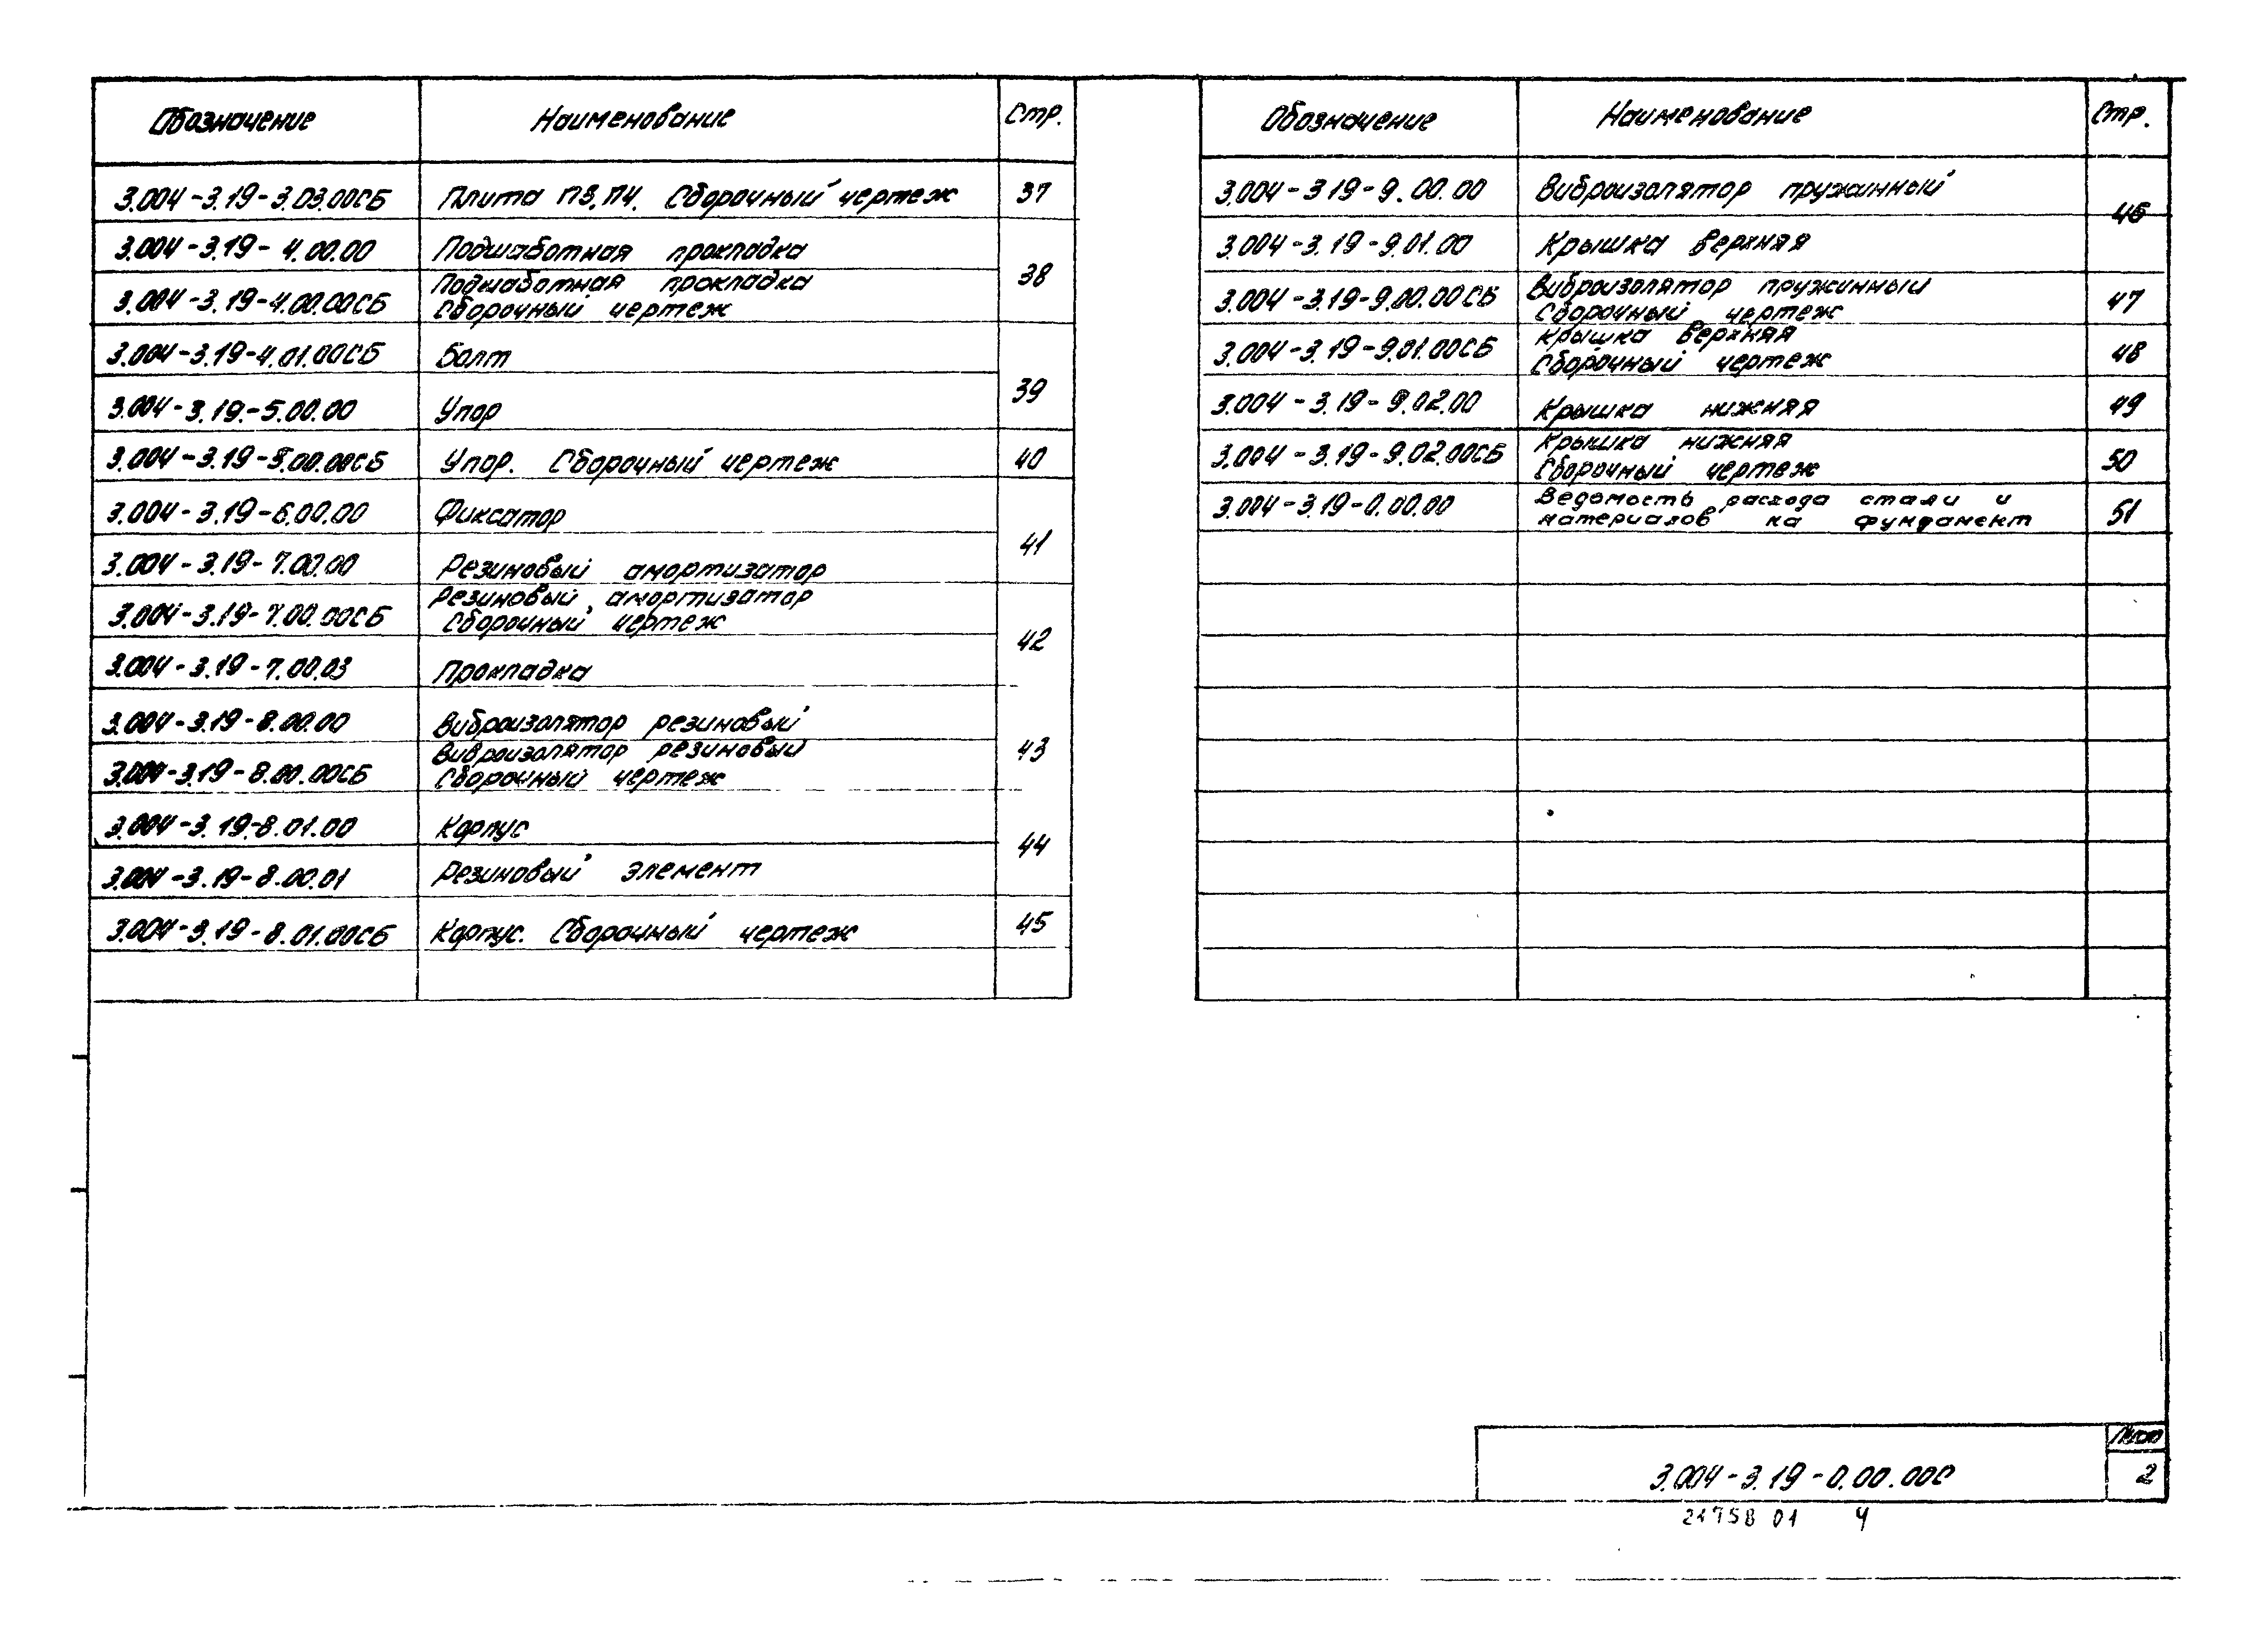 Обозначение Наименование Стр.
3.004-3.19-3.03.00СБ Плита П3, П4. Сборочный чертеж 37
3.004-3.19-4.00.00 Подшаботная прокладка
38
3.004-3.19-4.00.00СБ Подшаботная прокладка
Сборочный чертеж
3.004-3.19-4.01.00СБ Болт
39
3.004-3.19-5.00.00 Упор
3.004-3.19-5.00.00СБ Упор. Сборочный чертеж 40
3.004-3.19-6.00.00 Фиксатор
41
3.004-3.19-7.00.00 Резиновый амортизатор
3.004-3.19-7.00.00СБ Резиновый амортизатор
Сборочный чертеж
42
3.004-3.19-7.00.03 Прокладка
3.004-3.19-8.00.00 Виброизолятор резиновый
43
3.004-3.19-8.00.00СБ Виброизолятор резиновый
Сборочный чертеж
3.004-3.19-8.01.00 Корпус
44
3.004-3.19-8.00.01 Резиновый элемент
3.004-3.19-8.01.00СБ Корпус. Сборочный чертеж 45
Обозначение Наименование Стр.
3.004-3.19-9.00.00 Виброизолятор пружинный
46
3.004-3.19-9.01.00 Крышка верхняя
3.004-3.19-9.00.00СБ Виброизолятор пружинный
Сборочный чертеж 47
3.004-3.19-9.01.00СБ Крышка верхняя
Сборочный чертеж 48
3.004-3.19-9.02.00 Крышка нижняя 49
3.004-3.19-9.02.00СБ Крышка нижняя
Сборочный чертеж 50
3.004-3.19-0.00.00 Ведомость расхода стали и
материалов на фундамент 51
Лист
3.004-3.19-0.00.00С 2
21758 01 4